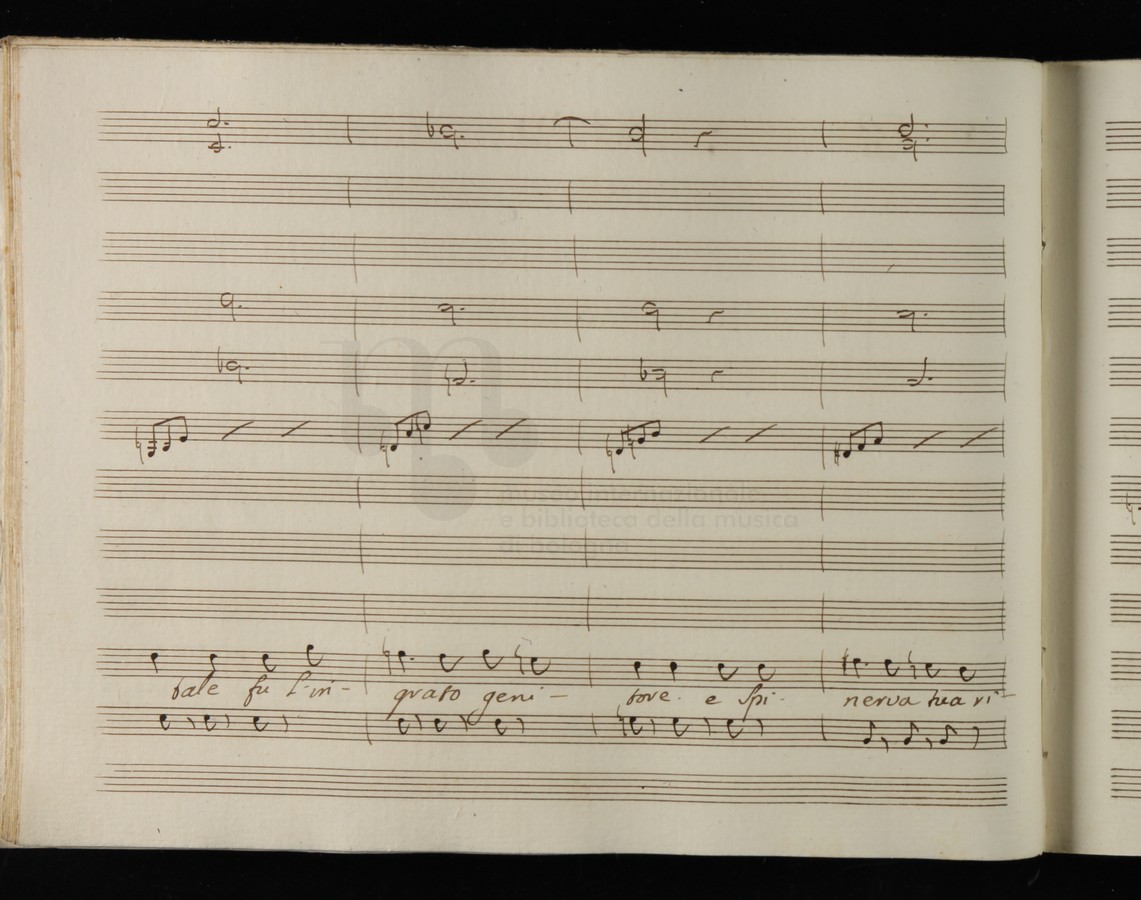 museo internazionale
e biblioteca della musica
di bologna
tale fu l'in- grato geni- tore. e spi- nerva tua ri-